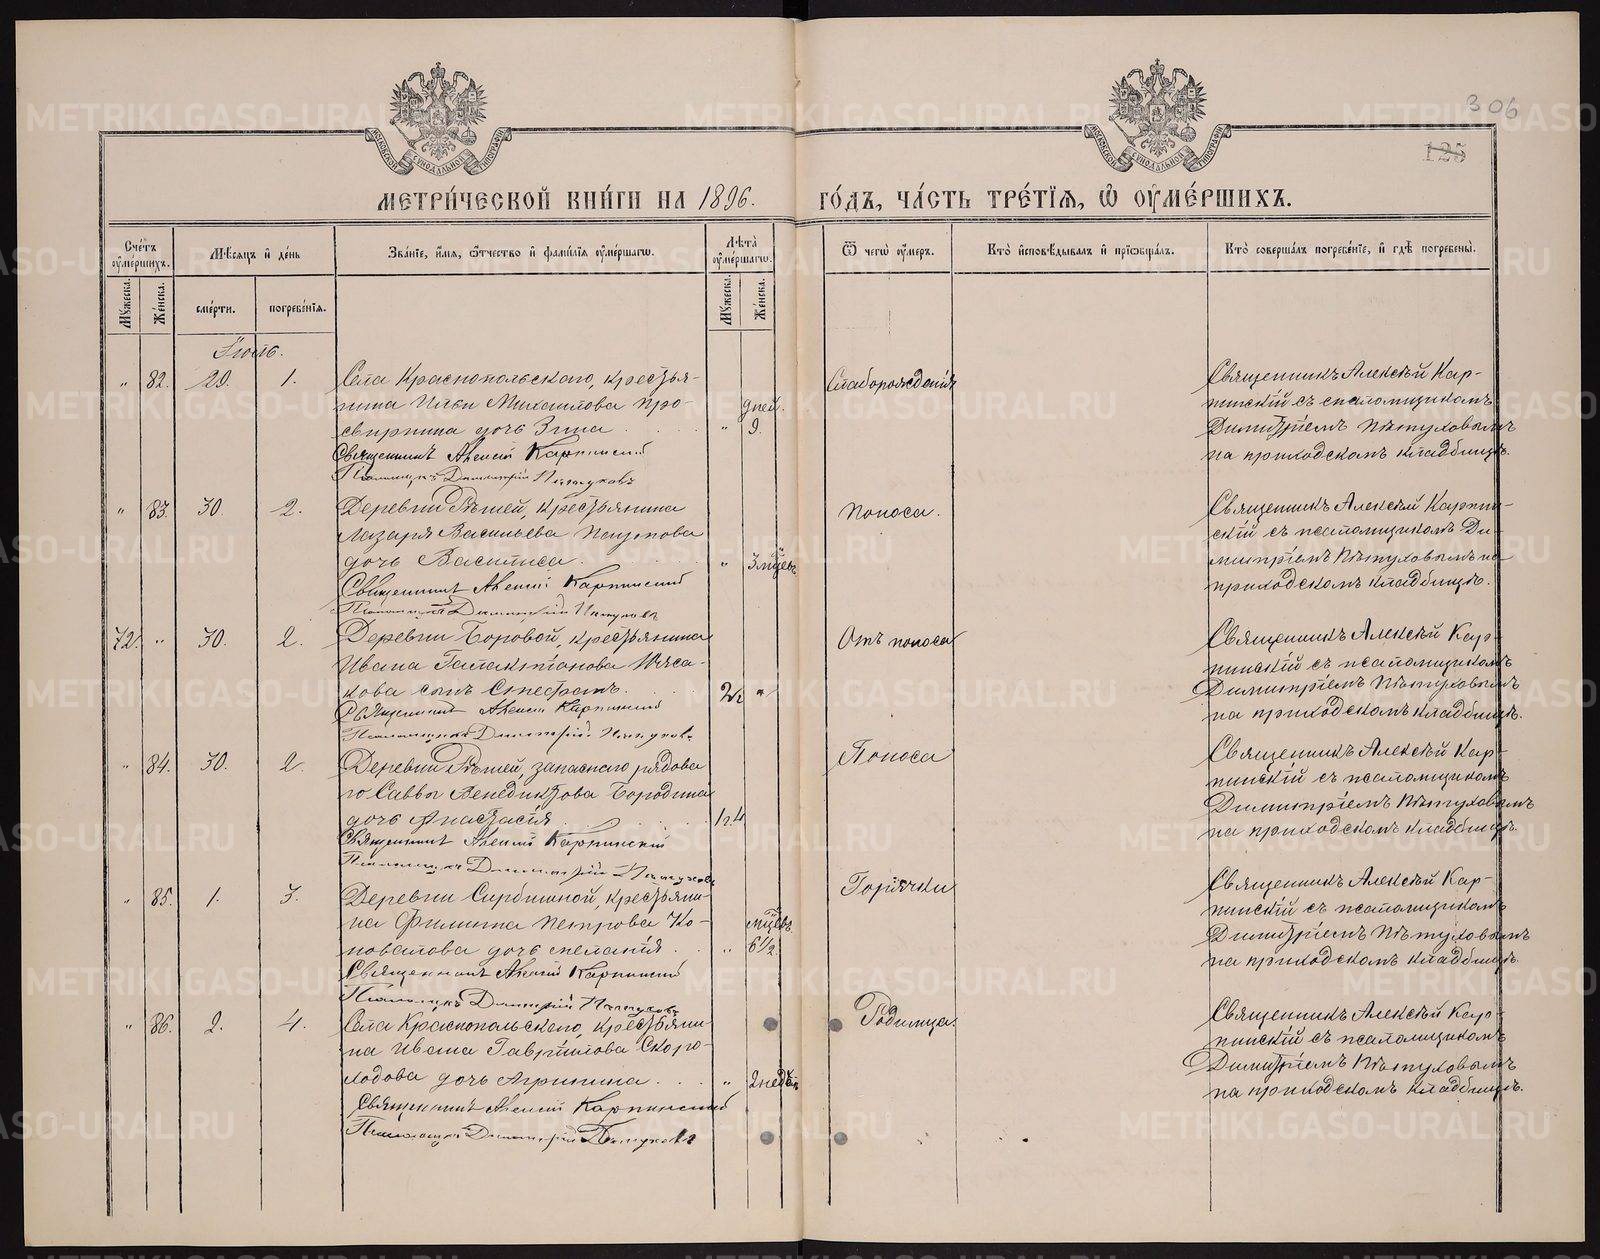 306
125
МОСКОВСКОЙ СѴНОДАЛЬНОЙ ТИПОГРАФІИ
МОСКОВСКОЙ СѴНОДАЛЬНОЙ ТИПОГРАФІИ
МЕТРИ́ЧЕСКОЙ КНИ́ГИ НА 1896. ГО́ДЪ, ЧА́СТЬ ТРЕ́ТІѦ, Ѡ҆ ОУ҆МЕ́РШИХЪ.
Сче́тъ оу҆ме́ршихъ.
Мѣ́сяцъ и҆ де́нь
Зва́нїе, и҆́мя, ѻ҆́тчество и҆ фами́лїя оу҆ме́ршагѡ.
Лѣта̀ оу҆ме́ршагѡ.
Ѿ чегѡ̀ оу҆́меръ.
Кто̀ и҆сповѣ́дывалъ и҆ прїѡбща́лъ.
Кто̀ соверша́лъ погребе́нїе, и҆ гдѣ̀ погребены̀.
Мꙋ́жеска.
Же́нска.
сме́рти.
погребе́нїя.
Мꙋ́жеска.
Же́нска.
Іюль.
" 82. 29. 1. Села Краснопольскаго, крестья-
нина Ильи Михаилова Про-
свирнина дочь Зина
" дней 9.
Священникъ Алексій Карпинскій
Псаломщикъ Димитрій Пѣтуховъ
Слаборожденія
Священникъ Алексѣй Кар-
пинскій съ псаломщикомъ
Димитріемъ Пѣтуховымъ
на приходскомъ кладбищѣ.
" 83. 30. 2. Деревни Рѣшей, крестьянина
Лазаря Васильева
дочь Васильса
" 3 мѣсяц
Священникъ Алексій Карпинскій
Псаломщикъ Димитрій Пѣтуховъ
Поноса.
Священникъ Алексѣй Карпин-
скій съ псаломщикомъ Ди-
митріемъ Пѣтуховымъ на
приходскомъ кладбищѣ.
72. " 30. 2. Деревни Боровой, крестьянина
Ивана Галактіонова Мяса-
кова сынъ
2 г. "
Священникъ Алексій Карпинскій
Псаломщикъ Димитрій Пѣтуховъ
Отъ поноса
Священникъ Алексѣй Кар-
пинскій съ псаломщикомъ
Димитріемъ Пѣтуховымъ
на приходскомъ кладбищѣ.
" 84. 30. 2. Деревни Рѣшей, запаснаго рядова
го Саввы Венедиктова Бородина
дочь Анастасія
1 г. 4
Священникъ Алексій Карпинскій
Псаломщикъ Димитрій Пѣтуховъ
Поноса
Священникъ Алексѣй Кар-
пинскій съ псаломщикомъ
Димитріемъ Пѣтуховымъ
на приходскомъ кладбищѣ.
" 85. 1. 3. Деревни Сарбишной, крестьяни-
на Филиппа Петрова Ко-
новалова дочь Меланія
" мѣсяцевъ 6 1/2
Священникъ Алексій Карпинскій
Псаломщикъ Димитрій Пѣтуховъ
Горячки
Священникъ Алексѣй Кар-
пинскій съ псаломщикомъ
Димитріемъ Пѣтуховымъ
на приходскомъ кладбищѣ.
" 86. 2. 4. Села Краснопольскаго, крестьяни-
на Ивана Гавріилова Скоро-
ходова дочь Агрипина
" 2 недѣли
Священникъ Алексій Карпинскій
Псаломщикъ Димитрій Пѣтуховъ
Родимца.
Священникъ Алексѣй Кар-
пинскій съ псаломщикомъ
Димитріемъ Пѣтуховымъ
на приходскомъ кладбищѣ.
METRIKI.GASO-URAL.RU